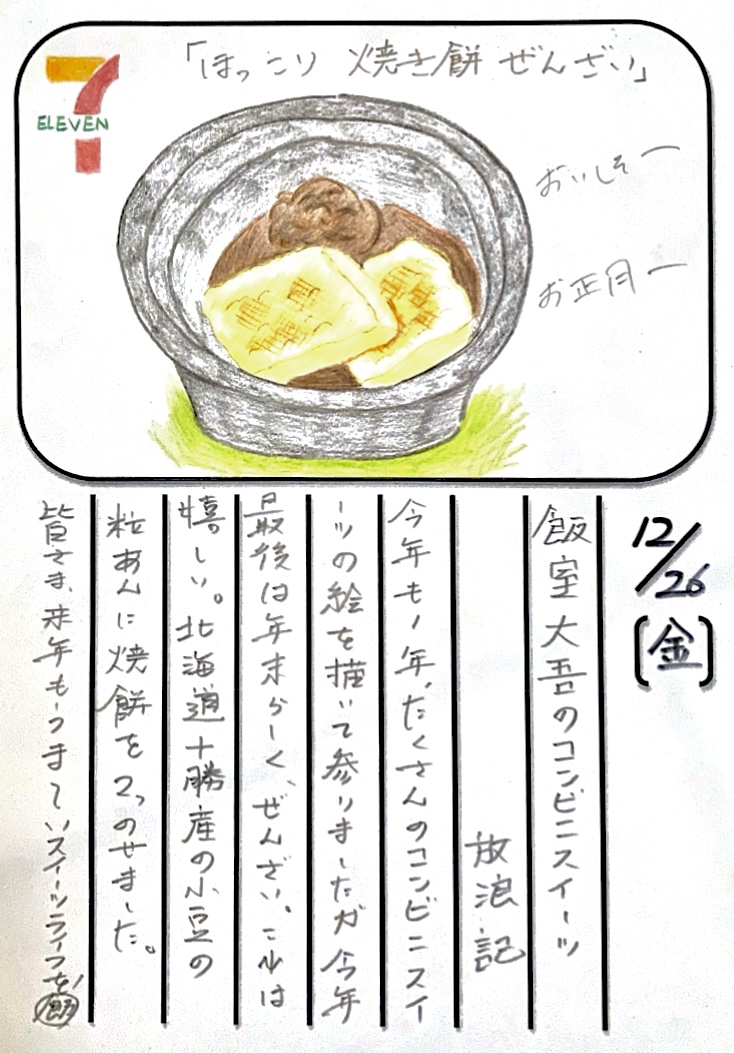 「ほっこり 焼き餅 ぜんざい」
7
ELEVEN
おいしそー
お正月ー
12/26
[金]
飯室大吾のコンビニスイーツ
放浪記
今年も1年、たくさんのコンビニスイ
ーツの絵を描いて参りましたが今年
最後は年末らしく、ぜんざい。これは
嬉しい。北海道十勝産の小豆の
粒あんに焼餅を2つのせました。
皆さま、来年もうまーいスイーツライフを!
飯